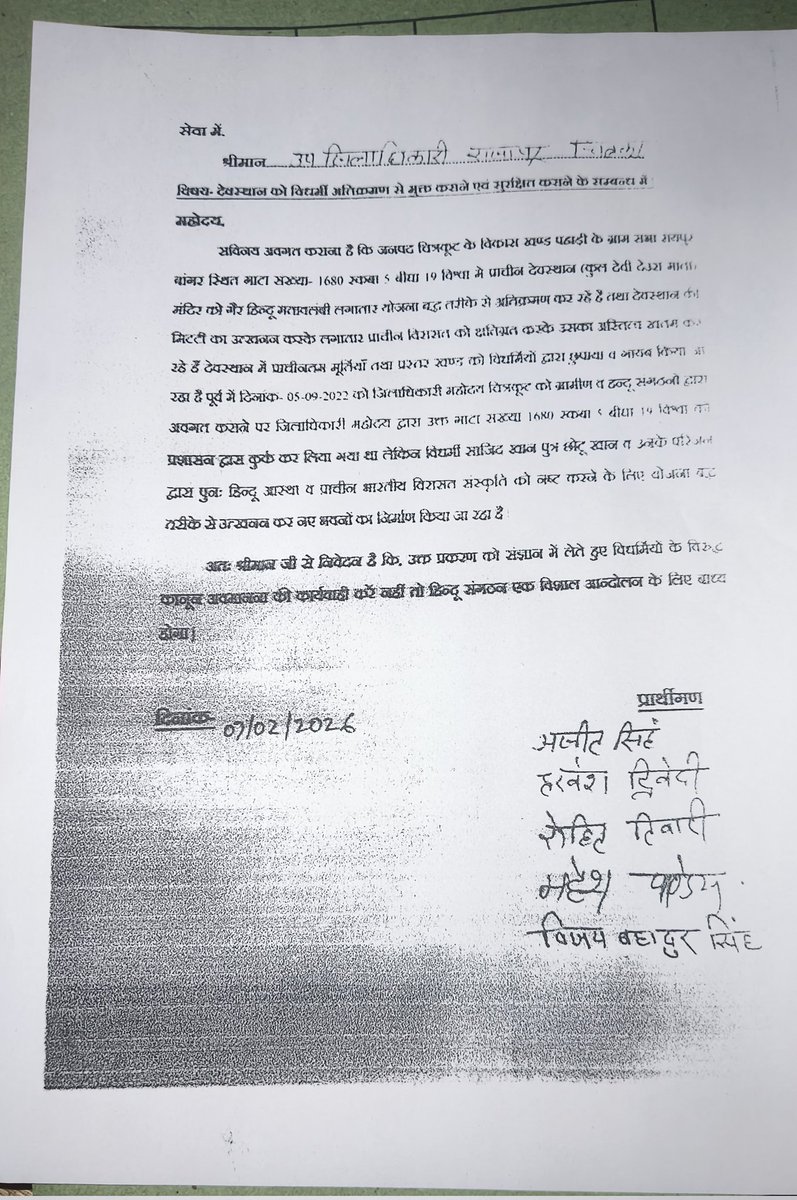 सेवा में,
श्रीमान उप जिलाधिकारी राजापुर चित्रकूट
विषय- देवस्थान को विधर्मी अतिक्रमण से मुक्त कराने एवं सुरक्षित कराने के सम्बन्ध में
महोदय,
सविनय अवगत कराना है कि जनपद चित्रकूट के विकास खण्ड पहाडी के ग्राम सभा रायपुर
बांगर स्थित गाटा संख्या- 1680 रकबा 5 बीघा 19 विश्वा मे प्राचीन देवस्थान (कुल देवी देउरा माता)
मंदिर को गैर हिन्दू मतावलंबी लगातार योजना बद्ध तरीके से अतिक्रमण कर रहें है तथा देवस्थान की
मिटटी का उत्खनन करके लगातार प्राचीन विरासत को क्षतिग्रत करके उसका अस्तित्व खतम कर
रहे हैं देवस्थान में प्राचीनतम मूर्तियाँ तथा प्रस्तर खण्ड को विधर्मियों द्वारा छुपाया व गायब किया जा
रहा है पूर्व में दिनांक- 05-09-2022 को जिलाधिकारी महोदय चित्रकूट को ग्रामीण व हन्दू संगठनो द्वारा
अवगत कराने पर जिलाधिकारी महोदय द्वारा उक्त गाटा संख्या 1680 रकबा 5 बीघा 19 विश्वा को
प्रशासन द्वारा कुर्क कर लिया गया था लेकिन विधर्मी साजिद खान पुत्र छोटू खान व उनके परिजन
द्वारा पुनः हिन्दू आस्था व प्राचीन भारतीय विरासत संस्कृति को नष्ट करने के लिए योजना बद्ध
तरीके से उत्खनन कर नए भवनों का निर्माण किया जा रहा है
अतः श्रीमान जी से निवेदन है कि, उक्त प्रकरण को संज्ञान में लेते हुए विधर्मियों के विरुद्ध
कानून अवमानना की कार्यवाही करें नहीं तो हिन्दू संगठन एक विशाल आन्दोलन के लिए बाध्य
होगा।
प्रार्थीगण
दिनांक- 07/02/2026
अजीत सिंह
हरवेश द्विवेदी
रोहित तिवारी
महेश पाण्डेय
विजय बहादुर सिंह